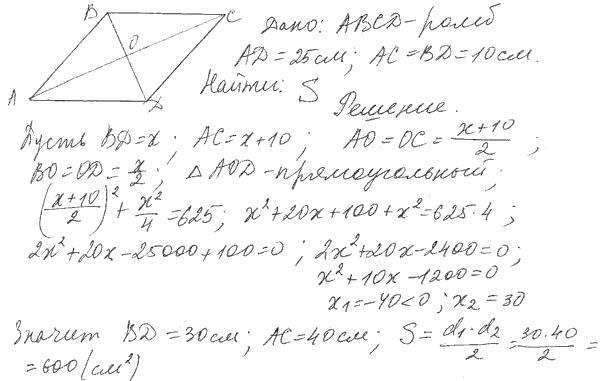 B C Дано: ABCD-ромб
O AD=25см; AC=BD=10см.
A D Найти: S
Решение.
Пусть BD=x; AC=x+10; AO=OC=\frac{x+10}{2};
BO=OD=\frac{x}{2}; △AOD-прямоугольный;
(\frac{x+10}{2})^2+\frac{x^2}{4}=625; x^2+20x+100+x^2=625·4;
2x^2+20x-25000+100=0; 2x^2+20x-2400=0;
x^2+10x-1200=0
x_1=-40<0; x_2=30
Значит BD=30см; AC=40см; S=\frac{d_1·d_2}{2}=\frac{30·40}{2}=
=600(см^2)